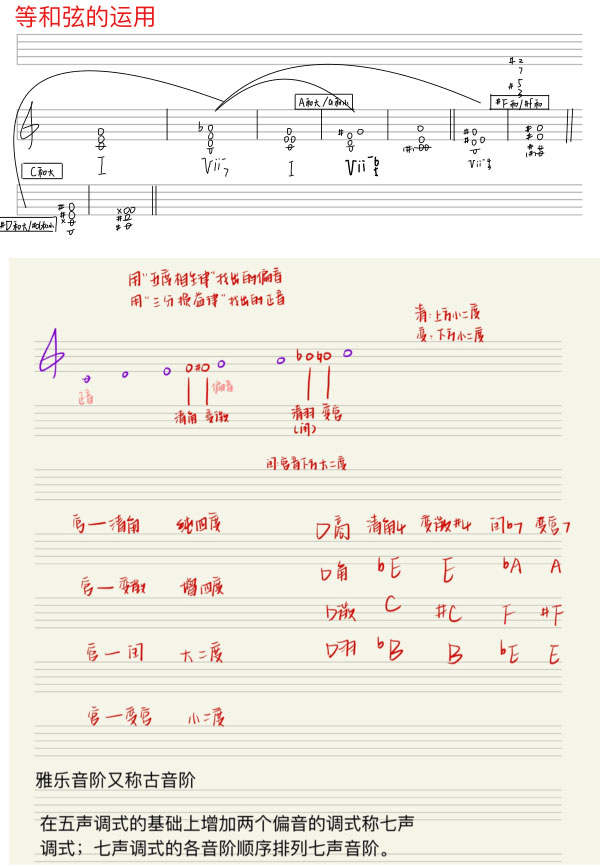 等和弦的运用
A和大/a和小
#F和/#f和
C和大
I
Vii7
I
用"五度相生律"找出的偏音
用"三分损益律"找出的正音
清:上方小二度
变:下方小二度
正音
偏音
清角 变徵
清羽 变宫
(闰)
闰:宫音下方大二度
宫一清角 纯四度
宫一变徵 增四度
宫一闰 大二度
宫一变宫 小二度
清角4 变徵#4 闰b7 变宫7
D角 bE E bA A
D徵 C #C F #F
D羽 bB B bE E
雅乐音阶又称古音阶
在五声调式的基础上增加两个偏音的调式称七声
调式；七声调式的各音阶顺序排列七声音阶。